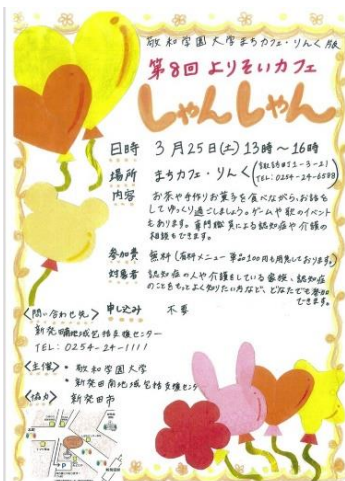 敬和学園大学まちカフェ・りんく版
第8回 よりそいカフェ
しゃんしゃん
日時 3月25日(土)13時〜16時
場所 まちカフェ・りんく(諏訪町1-3-21 TEL:0254-24-6598)
内容 お茶や手作りお菓子を食べながら、お話を
してゆっくり過ごしましょう。ゲームや歌のイベント
もあります。専門職員による認知症や介護の
相談もできます。
参加費 無料(有料メニュー 単品100円も用意しております。)
対象者 認知症の人や介護をしている家族、認知症
のことをもっとよく知りたい方など、どなたでも参加
できます。
申し込み 不要
<問い合わせ先>
新発田南地域包括支援センター
TEL: 0254-24-1111
<主催>・敬和学園大学
・新発田南地域包括支援センター
<協力> 新発田市
P